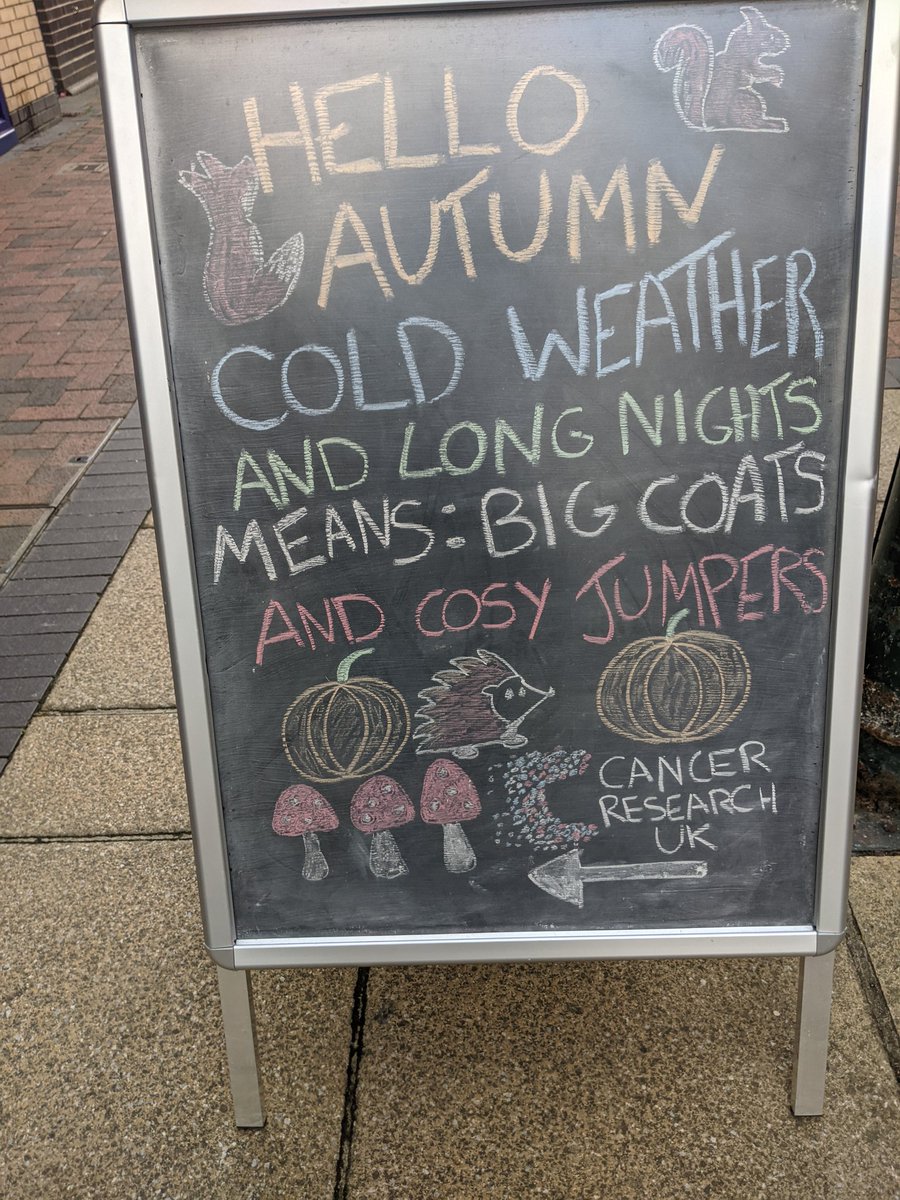 HELLO
AUTUMN
COLD WEATHER
AND LONG NIGHTS
MEANS: BIG COATS
AND COSY JUMPERS
CANCER
RESEARCH
UK